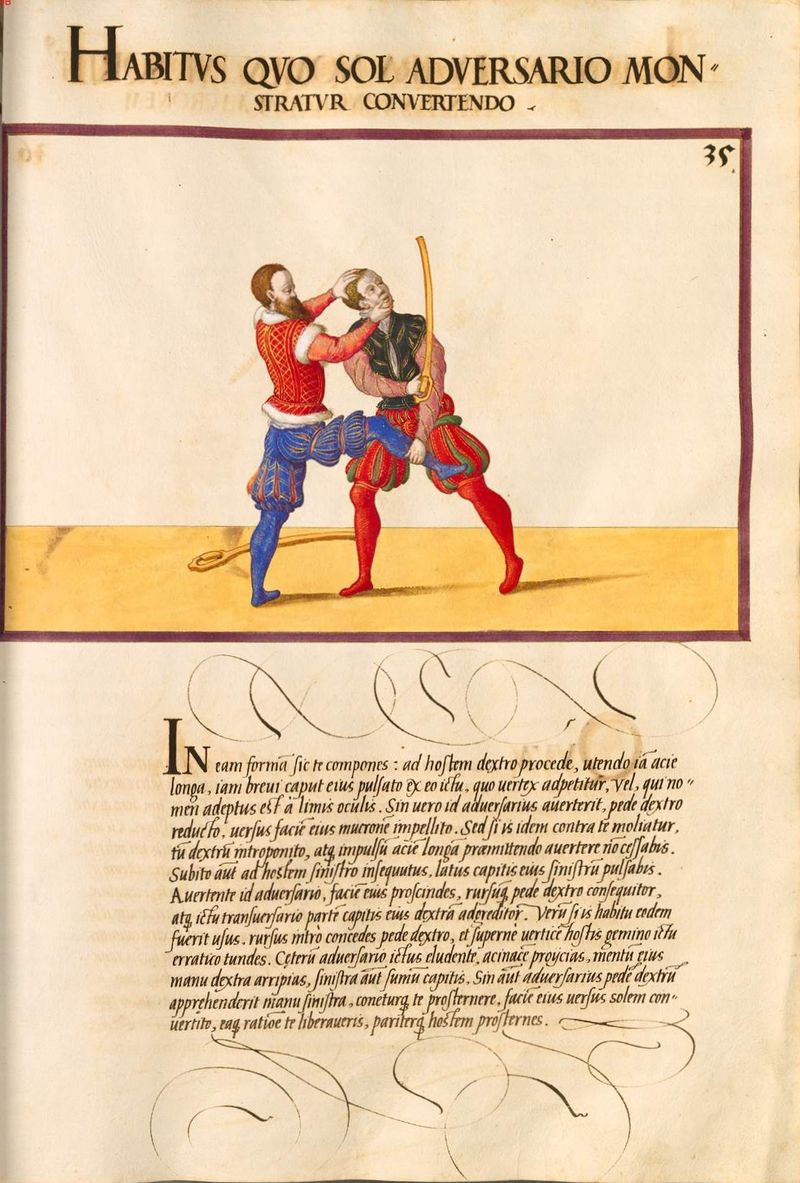 HABITVS QVO SOL ADVERSARIO MON〃
STRATVR CONVERTENDO
35.
IN eam formā sic te compones : ad hostem dextro procede, utendo iā acie
longa, iam breui caput eius pulsato ex eo ictu, quo uertex adpetitur, vel, qui no〃
men adeptus est à limis oculis. Sin uero id aduersarius auerterit, pede dextro
reducto, uersus faciē eius mucronē impellito. Sed si is idem contra te moliatur,
tū dextrū introponito, atq̨ impulsū acie longa præmittendo auertere nō cessabis.
Subito aūt ad hostem sinistro insequutus, latus capitis eius sinistrū pulsabis.
Auertente id aduersario, faciē eius proscindes, rursusq̨ pede dextro consequitor,
atq̨ ictu transuersario partē capitis eius dextrā adgreditor. Verū si is habitu eodem
fuerit usus, rursus intrò concedes pede dextro, et superne uerticē hostis gemino ictu
erratico tundes. Ceterū aduersario ictus eludente, acinacē proijcias, mentū eius
manu dextra arripias, sinistra aūt sumū capitis. Sin aūt aduersarius pedē dextrū
apprehenderit manu sinistra, coneturq̨ te prosternere, faciē eius uersus solem con〃
uertito, eaq̨ ratiōe te liberaueris, pariterq̨ hostem prosternes.